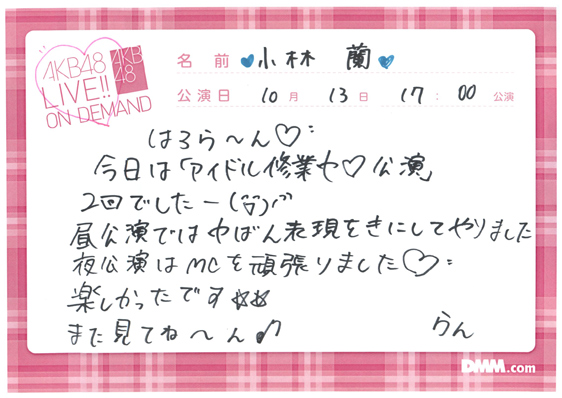 AKB48
LIVE!!
ON DEMAND
AKB
48
名前 小林 蘭
公演日 10月 13日 17:00 公演
はろら〜ん♡
今日は「アイドル修業中♡公演」
2回でしたー
昼公演では中ばん表現をきにしてやりました
夜公演はMCを頑張りました♡
楽しかったです
また見てね〜ん♪
らん
DMM.com